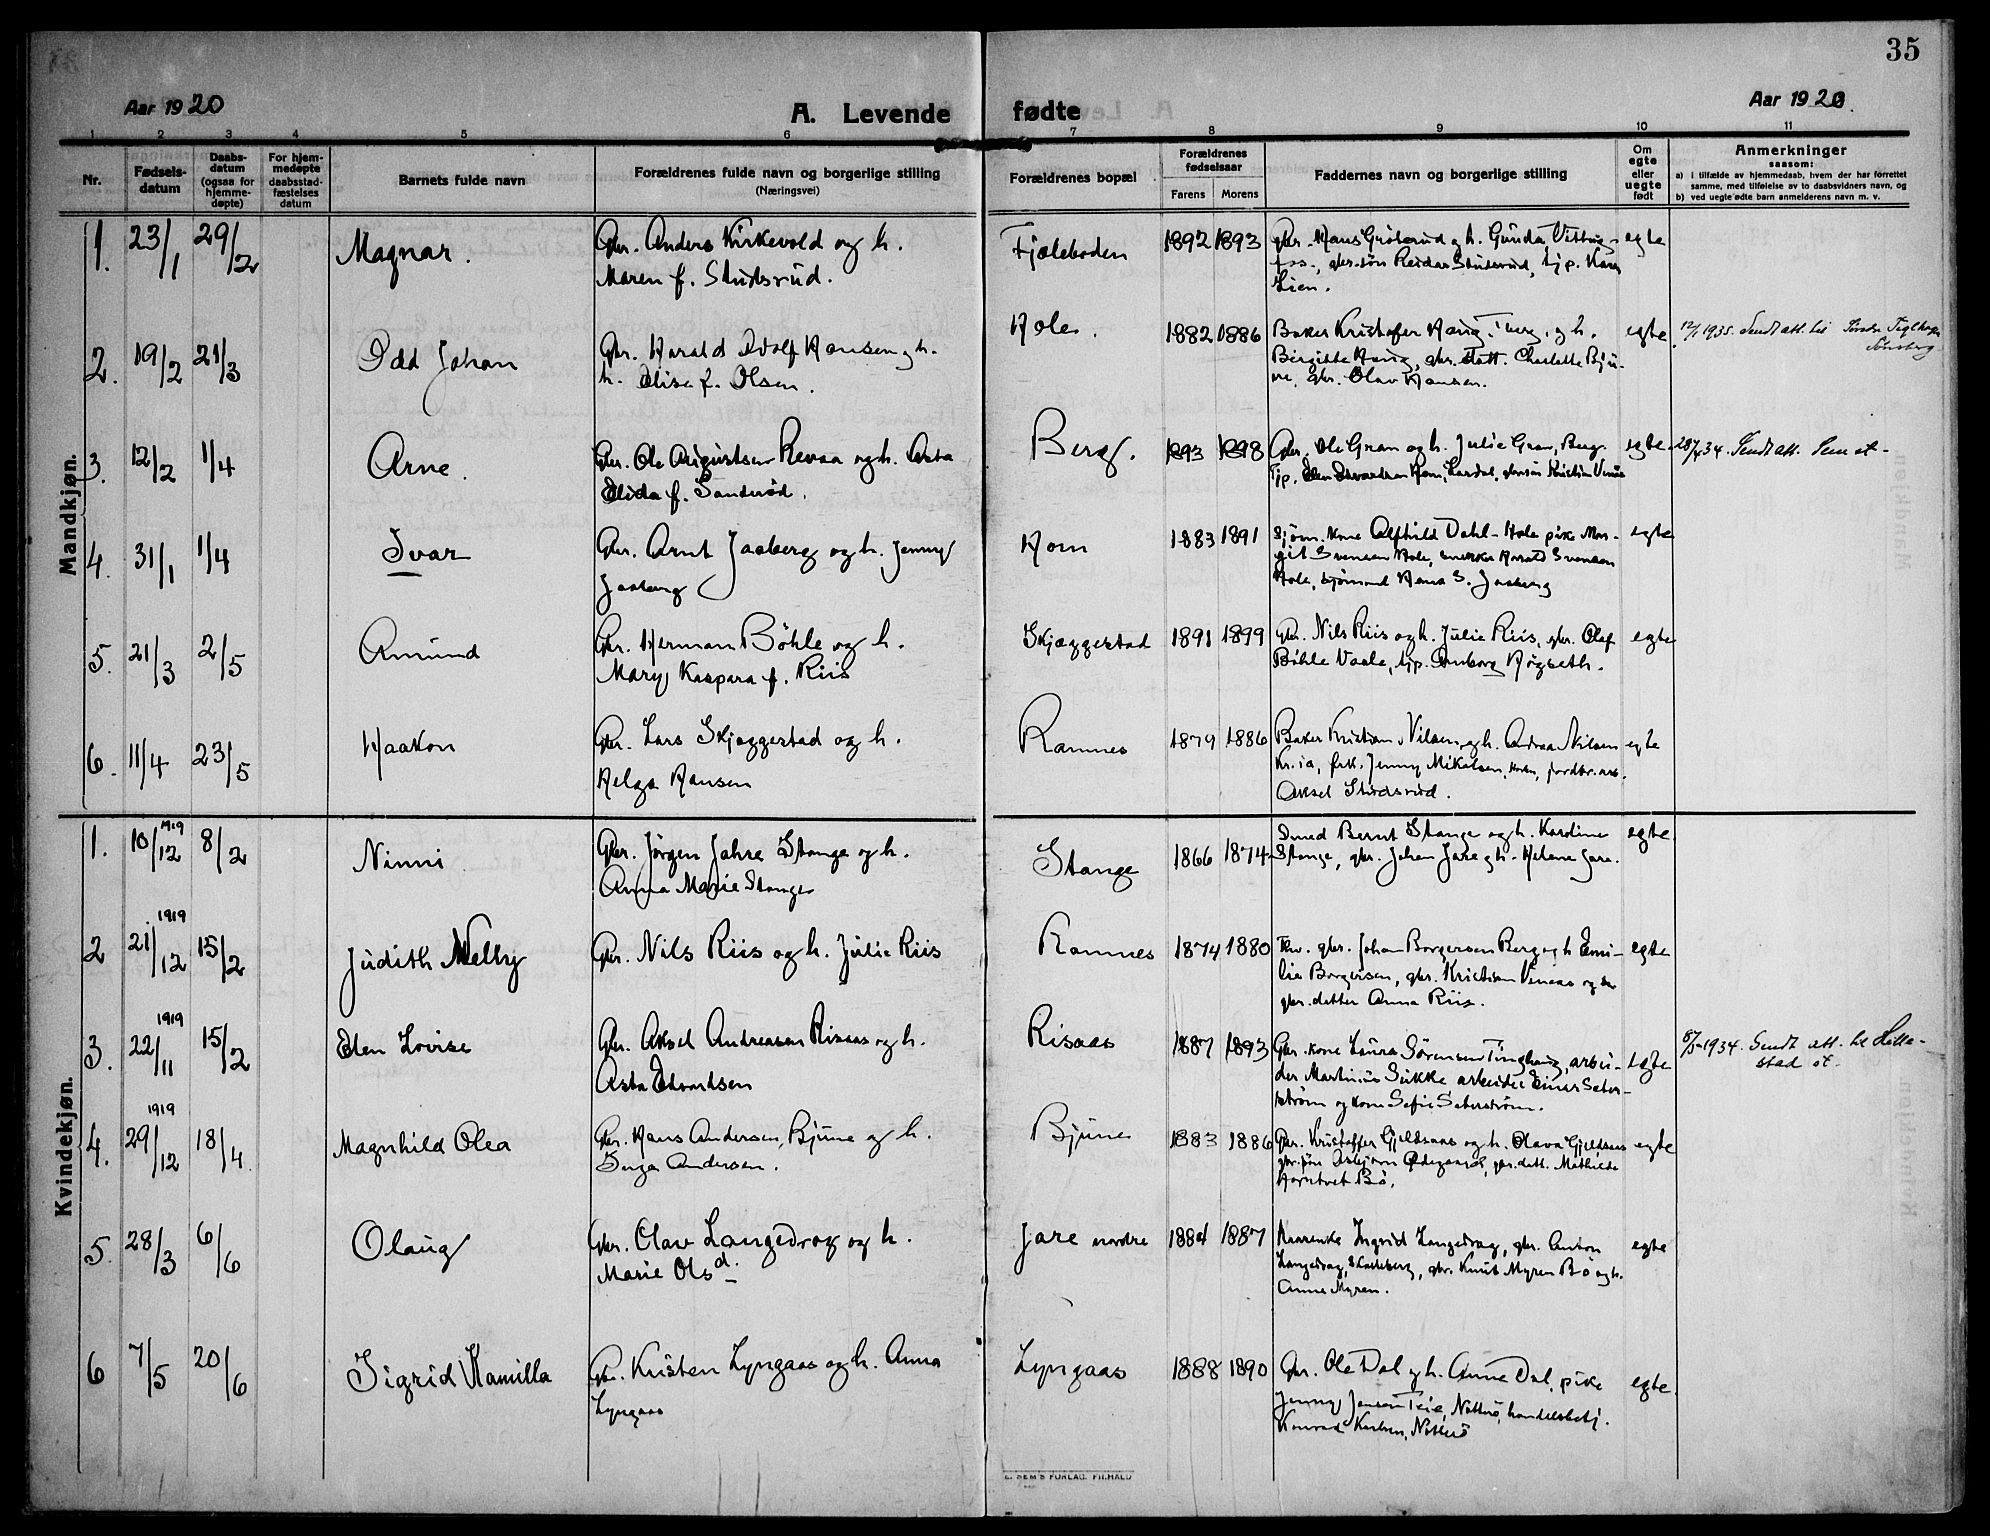 35
Aar 1920
A. Levende fødte
Aar 1920.
1 2 3 4 5 6 7 8 9 10 11
Nr.
Fødsels-datum
Daabs-datum (ogsaa for hjemme-døpte)
For hjem-medøpte daabsstad-fæstelses datum
Barnets fulde navn
Forældrenes fulde navn og borgerlige stilling
(Næringsvei)
Forældrenes bopæl
Forældrenes fødselsaar
Farens Morens
Faddernes navn og borgerlige stilling
Om egte eller uegte født
Anmerkninger
saasom:
a) i tilfælde av hjemmedaab, hvem der har forrettet
samme, med tilføielse av to daabsvidners navn, og
b) ved uegte ødte barn anmelderens navn m. v.
Mandkjøn.
1. 23/1 29/2 Magnar. Gbr. Anders Kirkevold og h.
Maren f. Studsrud.
Fjæleboden 1892 1893 gbr. Hans Gröterud og h. Gunda
gbr.søn Reidar Studsrud, tjp.
Lien.
egte
2. 19/2 21/3 Odd Johan Gbr. Harald Adolf Hansen og h.
h. Elise f. Olsen.
Holes. 1882 1886 Baker Kristofer Haug, og h.
Birgitte Haug, gbr. datt. Charlotte Bju-
ne, gbr. Olav Hansen.
egte 12/1 1935. Sendt att. til
Tönsberg
3. 12/2 1/4 Arne. Gbr. Ole Augustsen Revaa og h. Asta
Elida f. Sanderöd.
Berg. 1893 1898 Gbr. Ole Gran og h. Julie Gran, Berg.
Tjp. Hom, Lardal, Kristian Venaas
egte 28/4 34. Sendt att. Sem st-
4. 31/1 1/4 Ivar Gbr. Arnt Jaaberg og h. Jenny
Jaaberg
Hom 1883 1891 Sjöm. kone Alfhild Dahl-Hole pike Mar-
git Svensen Hole, Harald Svensen
Hole, sjömand Hans S. Jaaberg
egte
5. 21/3 2/5 Amund Gbr. Herman Böhle og h.
Mary Kaspara f. Riis
Skjæggestad 1891 1899 Gbr. Nils Riis og h. Julie Riis, gbr. Olaf
Böhle Vaale, tjp. Högseth.
egte
6. 11/4 23/5 Haakon Gbr. Lars Skjæggestad og h.
Helga Hansen
Ramnes 1879 1886 Baker Kristian Nilsen og h. Andrea Nilsen
Kr.ia, frk. Jenny Mikalsen, jordbr.arb.
Aksel Studsrud.
egte
Kvindekjøn.
1. 10/12 1919 8/2 Ninni Gbr. Jörgen Jahre Stange og h.
Anna Marie Stange
Stange 1866 1874 Smed Bernt Stange og h. Kardine
Stange, gbr. Johan Jare og h. Helene Jare.
egte
2 21/12 1919 15/2 Judith Nelly Gbr. Nils Riis og h. Julie Riis
Ramnes 1874 1880 Fhv. gbr. Johan Borgersen Berg og h Emi-
lie Borgersen, gbr. Kristian Venaas og
gbr.datter Anna Riis.
egte
3. 22/11 1919 15/2 Elen Lovise Gbr. Aksel Andreasen Risaas og h.
Asta Edvardsen
Risaas 1887 1893 Gbr. kone Laura Sörensen Tinghaug, arbei-
der Martinius Sukke arbeider Einar Seter-
ström og kone Sofie Seterström.
egte 8/5-1934. Sendt att. til Hille-
stad st-
4. 29/12 1919 18/4 Magnhild Olea Gbr. Hans Andersen, Bjune og h.
Inga Andersen.
Bjune 1883 1886 Gbr. Kristoffer Gjeldsaas og h. Olava Gjeldsaas
gbr.søn Asbjörn Ödegaard, gbr.datt. Mathilde
Horntvet Bö.
egte
5. 28/3 6/6 Olaug Gbr. Olav Langedrag og h.
Marie Olsd.
Jare nordre 1884 1887 Ingrid Langedrag, gbr. Anton
Langedrag, gbr. Knut Myren Bö og h.
Anne Myren.
egte
6 7/5 20/6 Sigrid Kamilla Gbr. Kristen Lyngaas og h. Anna
Lyngaas
Lyngaas 1888 1890 Gbr. Ole Dal og h. Anne Dal, pike
Jenny Jansen Teie, Nötterö, handelsbetj.
Konrad Karlsen, Nötterö
egte.
E. SEM'S FORLAG. FR.HALD